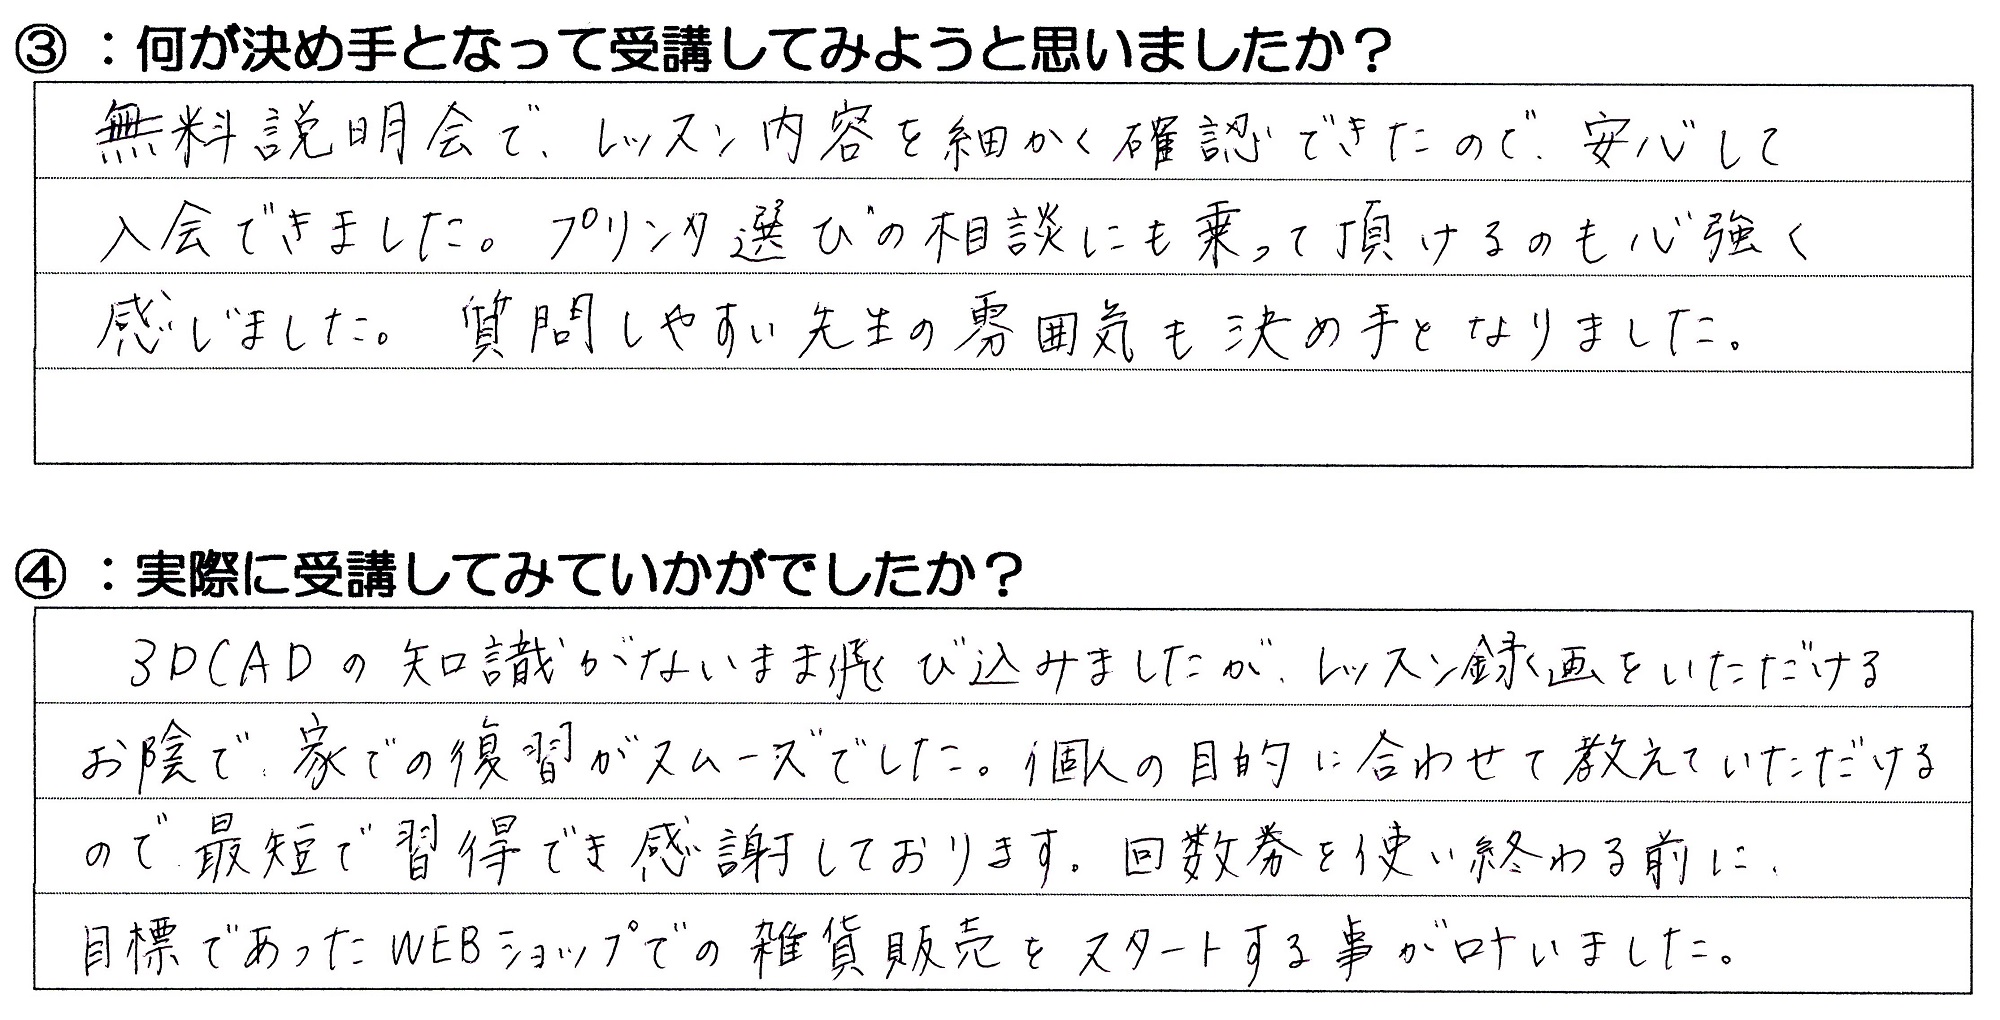 ③：何が決め手となって受講してみようと思いましたか？
無料説明会で、レッスン内容を細かく確認できたので、安心して
入会できました。プリンタ選びの相談にも乗って頂けるのも心強く
感じました。質問しやすい先生の雰囲気も決め手となりました。
④：実際に受講してみていかがでしたか？
3DCADの知識がないまま飛び込みましたが、レッスン録画をいただける
お陰で、家での復習がスムーズでした。個人の目的に合わせて教えていただける
ので、最短で習得でき感謝しております。回数券を使い終わる前に、
目標であったWEBショップでの雑貨販売をスタートする事が叶いました。